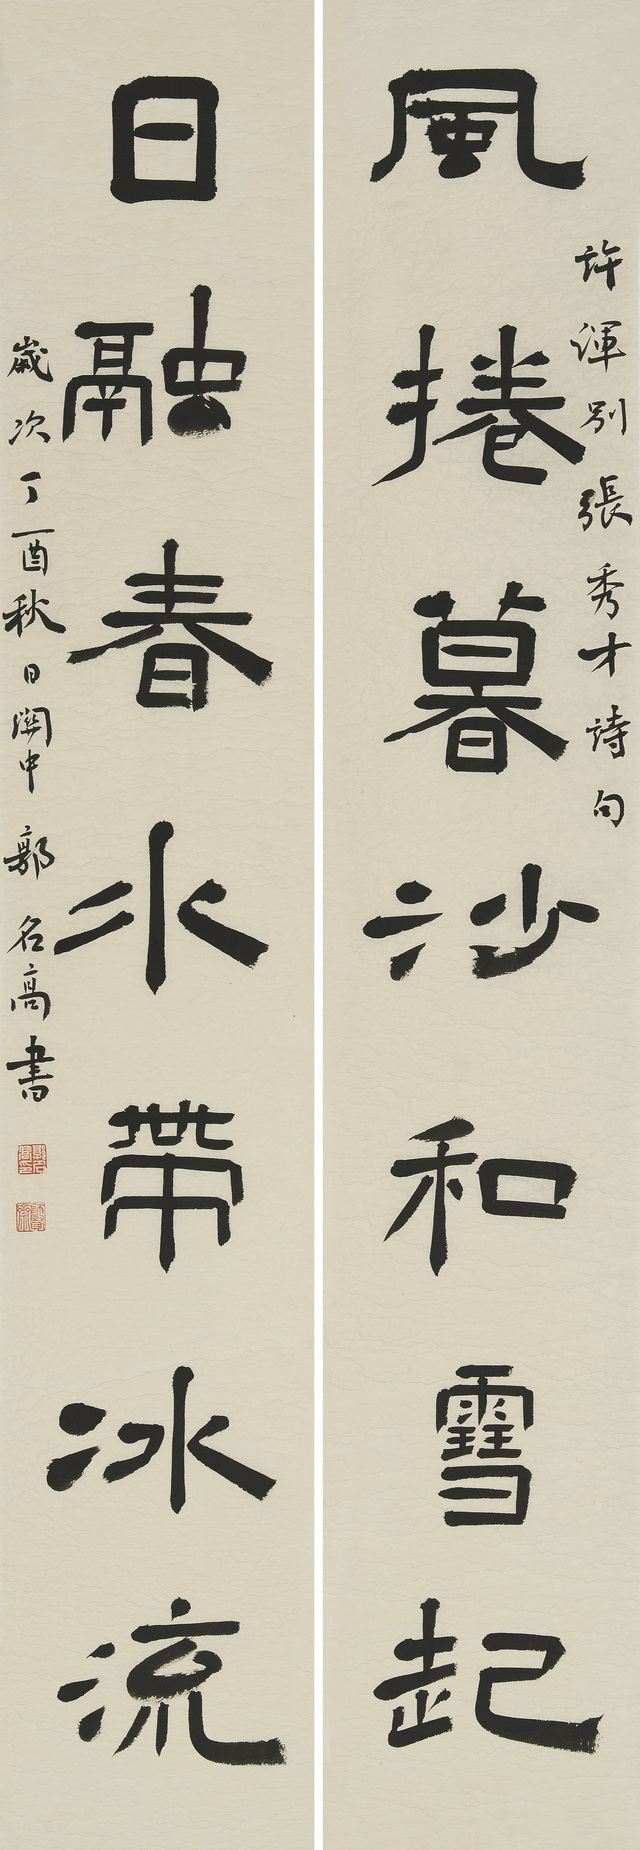 許渾別張秀才詩句
風捲暮沙和雪起
日融春水帶冰流
歲次丁酉秋日關中郭名高書